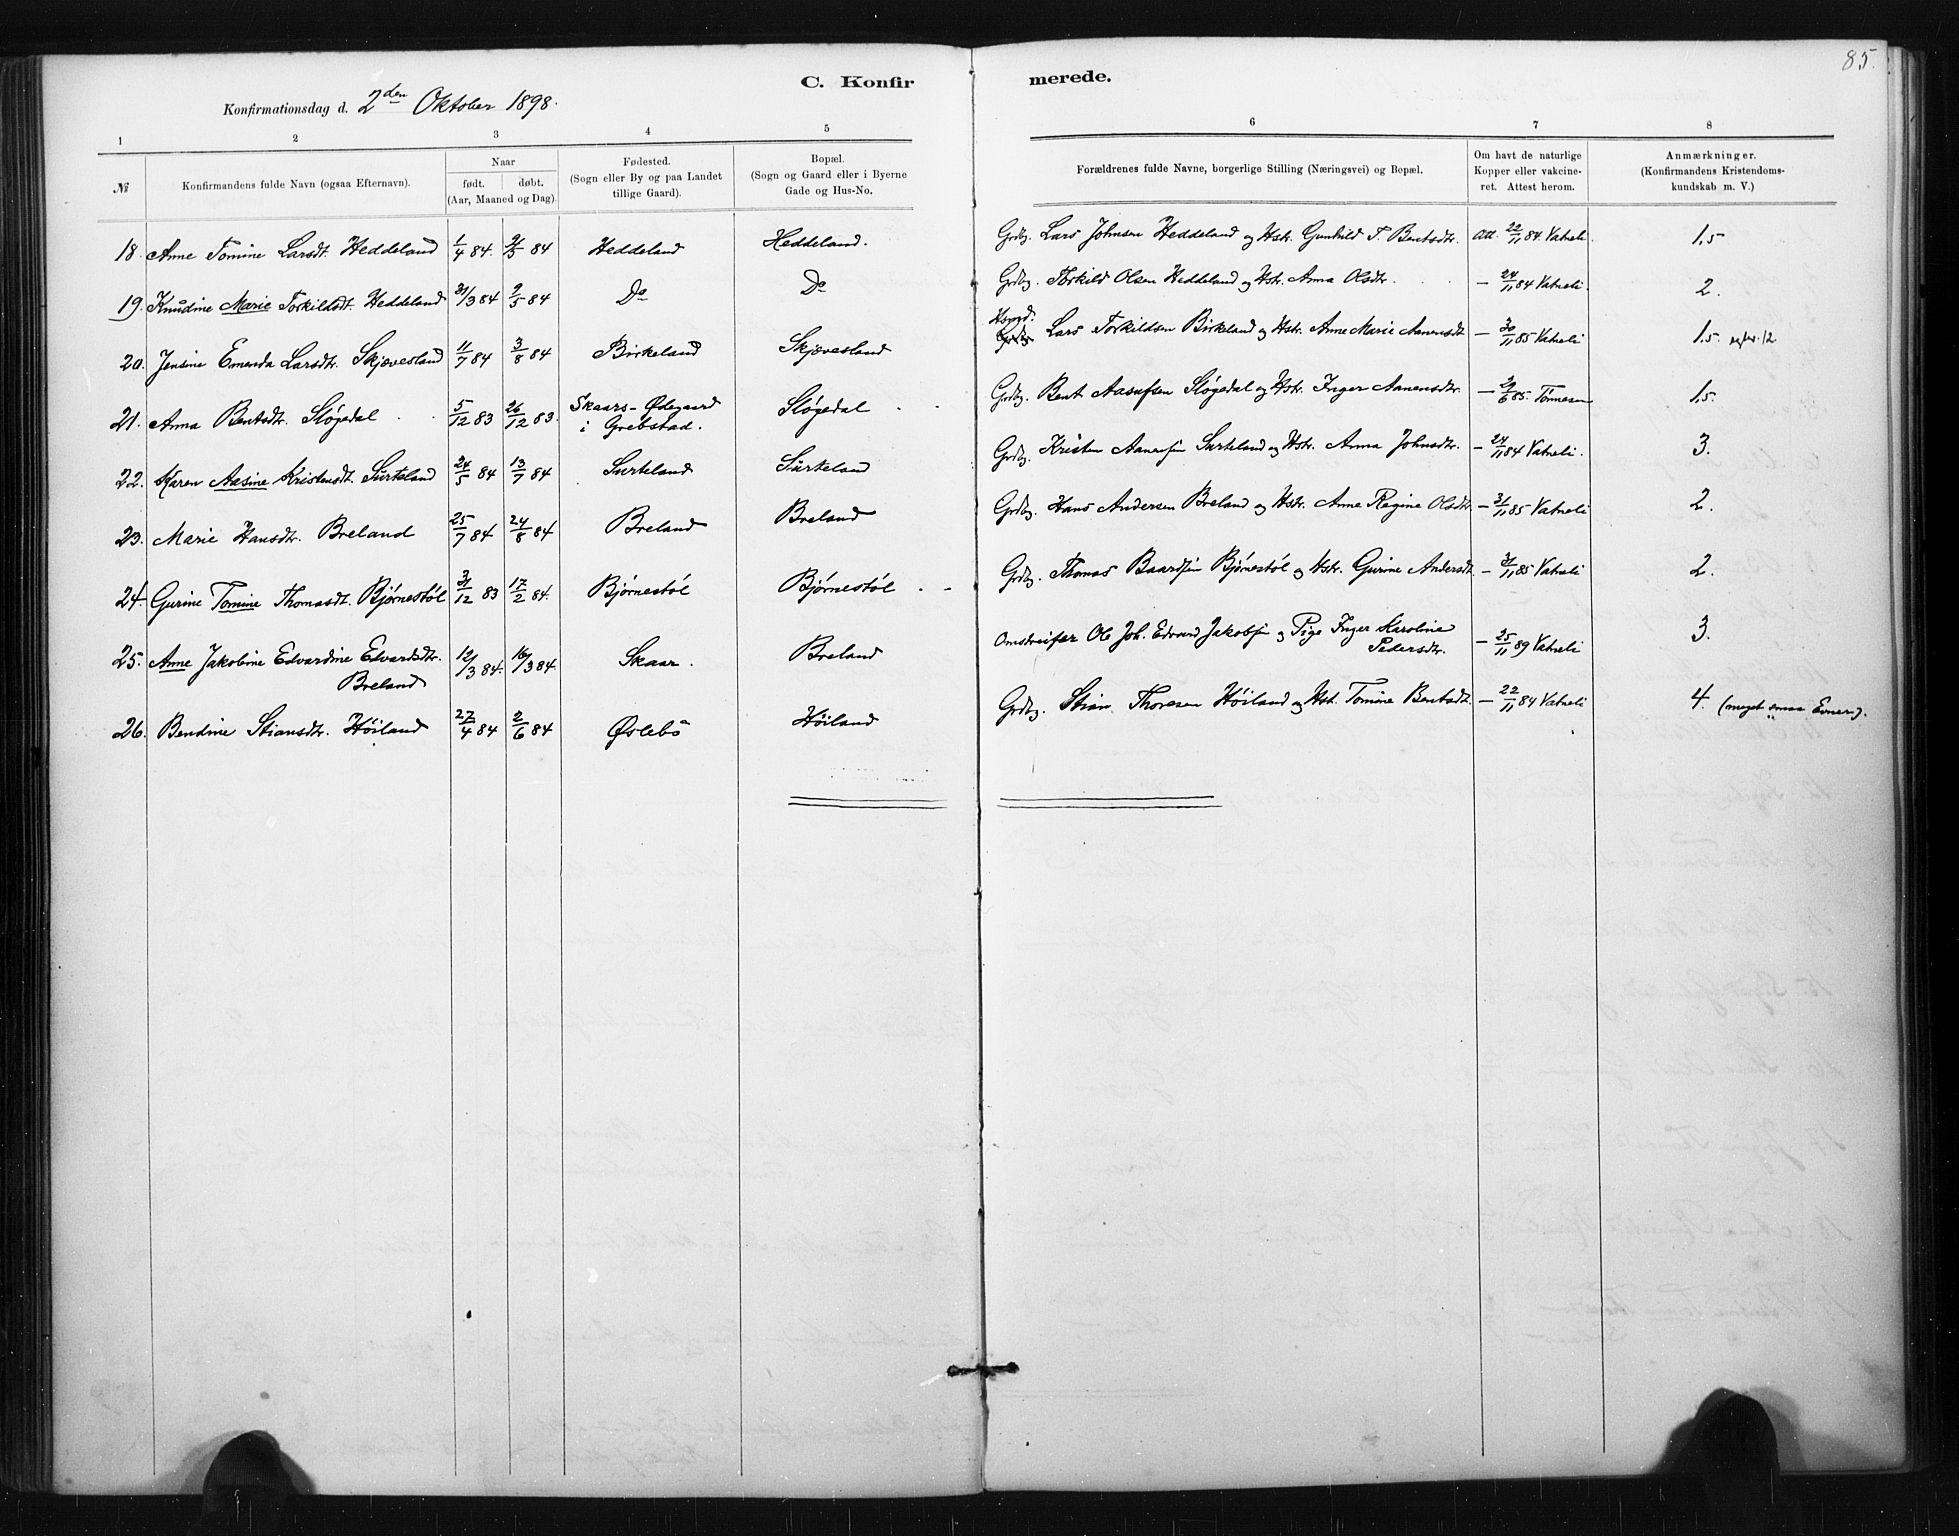 85.
C. Konfirmerede.
Konfirmationsdag d. 2den Oktober 1898.
1 2 3 4 5 6 7 8
№ Konfirmandens fulde Navn (ogsaa Efternavn). Naar født. døbt. (Aar, Maaned og Dag). Fødested. (Sogn eller By og paa Landet tillige Gaard). Bopæl. (Sogn og Gaard eller i Byerne Gade og Hus-No. Forældrenes fulde Navne, borgerlige Stilling (Næringsvei) og Bopæl. Om havt de naturlige Kopper eller vakcineret. Attest herom. Anmærkninger. (Konfirmandens Kristendomskundskab m. V.)
18. Anne Tomine Larsdt. Heddeland 1/4 84. 2/5 84 Heddeland Heddeland. Grdbg. Lars Johnsen Heddeland og Hstr. Gunhild T. Bentsdtr. Att. 22/11 84. Vatneli. 1,5
19. Knudine Marie Torkildsdt. Heddeland 31/3 84 2/5 84 Do Do Grdbg. Torkild Olsen Heddeland og Hstr. Anna Olsdtr. — 24/11 84 Vatneli. 2.
20. Jensine Emenda Larsdtr. Skjævesland 11/7 84 3/8 84 Birkeland Skjævesland Lars Torkildsen Birkeland og Hstr. Anne Marie Aanensdt — 30/11 85 Vatneli 1,5
21. Anna Bentsdtr. Sløgedal 5/12 83 26/12 83. Skaars-Ødegaard i Grebstad. Sløgedal Grdbg. Bent Aasufsen Sløgedal og Hstr. Inger Aanensdtr. — 85. Tönnesen 1,5.
22. Karen Aasine Kristensdt. Surteland 24/5 84 13/7 84 Surteland Surteland Grdbg. Kristen Aanensen Surteland og Hstr. Anna Johnsdtr. — 24/11 84 Vatneli. 3.
23. Marie Hansdtr. Breland 25/7 84 24/8 84 Breland Breland Grdbg. Hans Andersen Breland og Hstr. Anne Regine Olsdtr — 31/11 85 Vatneli 2.
24. Gurine Tomine Thomasdt. Bjørnestøl 31/12 83 17/2 84. Bjørnestøl Bjørnestøl Grdbg. Thomas Baardsen Bjørnestøl og Hstr. Gurine Andersdt. — 31/11 85 Vatneli 2.
25. Anne Jakobine Edvardine Edvardsdtr. Breland 12/3 84. 16/3 84. Skaar. Breland Omstreifer Ole Joh. Edvard Jakobsen og Pige Inger Karoline Pedersdtr. — 25/11 89 Vatneli 3.
26. Bendine Stiansdtr. Höiland 27/4 84 2/6 84 Øslebö Höiland Grdbg. Stian Thoresen Höiland og Hst. Tomine Bentsdt. — 22/11 84 Vatneli 4. (meget smaa Evner).